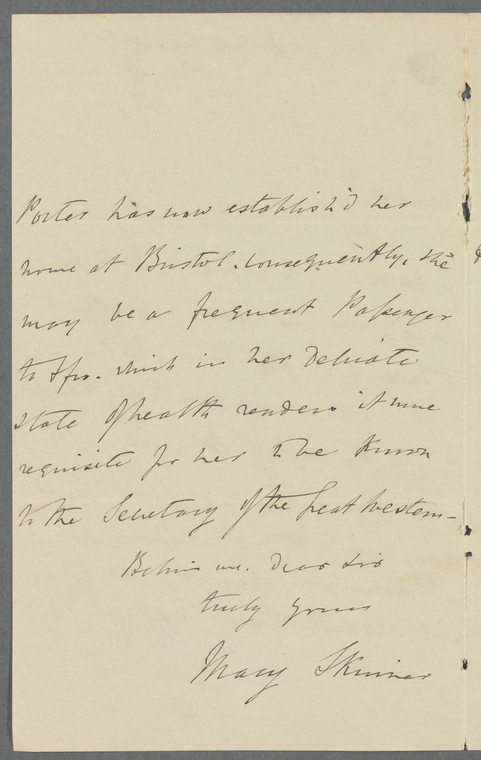 Porter has now establish'd her
home at Bristol. consequently, she
may be a frequent Passenger
to & fro. which in her Delicate
state of health renders it more
requisite for her to be Known
to the Secretary of the Great Western—
Believe me. Dear Sir
truly yours
Mary Skinner